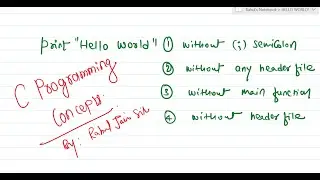 Print "Hello World"
① without (;) semicolon
② without any header file
③ without main function
④ without header file
C Programming
Concepts
By: Rahul Jain Sir